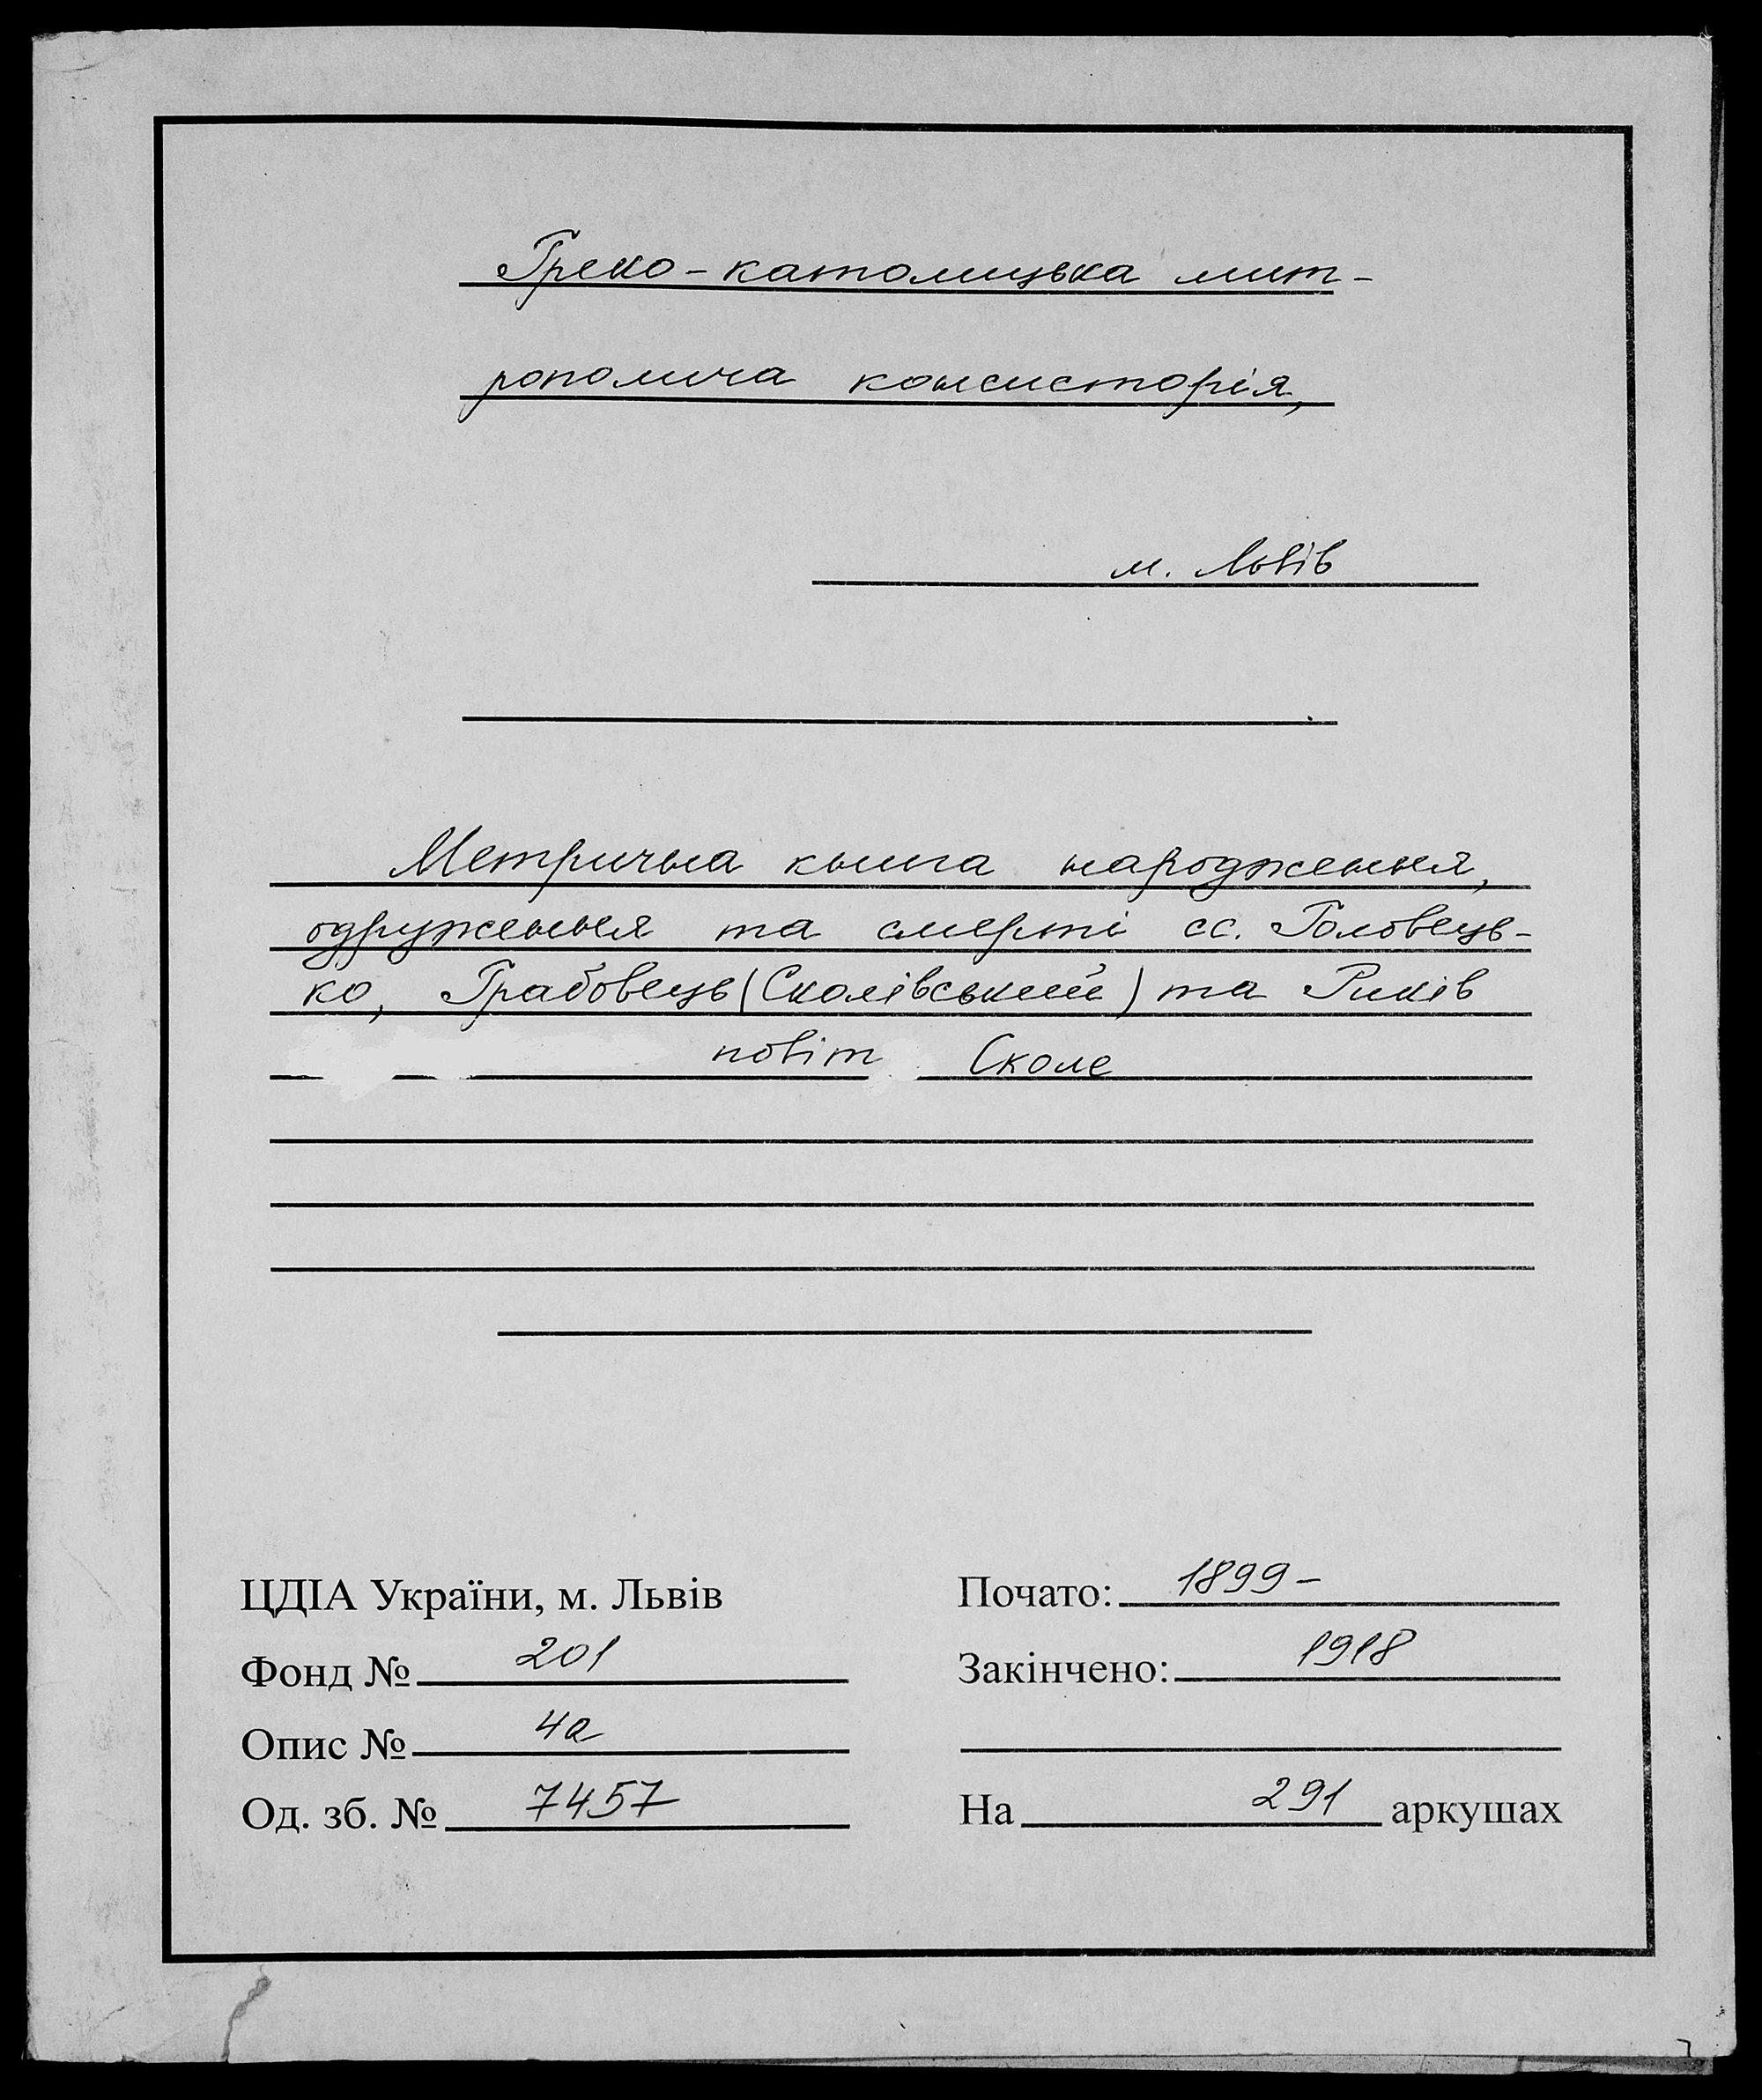 Греко-католицька мит-
рополича консисторія,
м. Львів
Метрична книга народження,
одруження та смерті сс. Головець-
ко, Грабовець (Сколівський) та Риків
повіт Сколе
ЦДІА України, м. Львів
Фонд № 201
Опис № 4а
Од. зб. № 7457
Почато: 1899-
Закінчено: 1918
На 291 аркушах